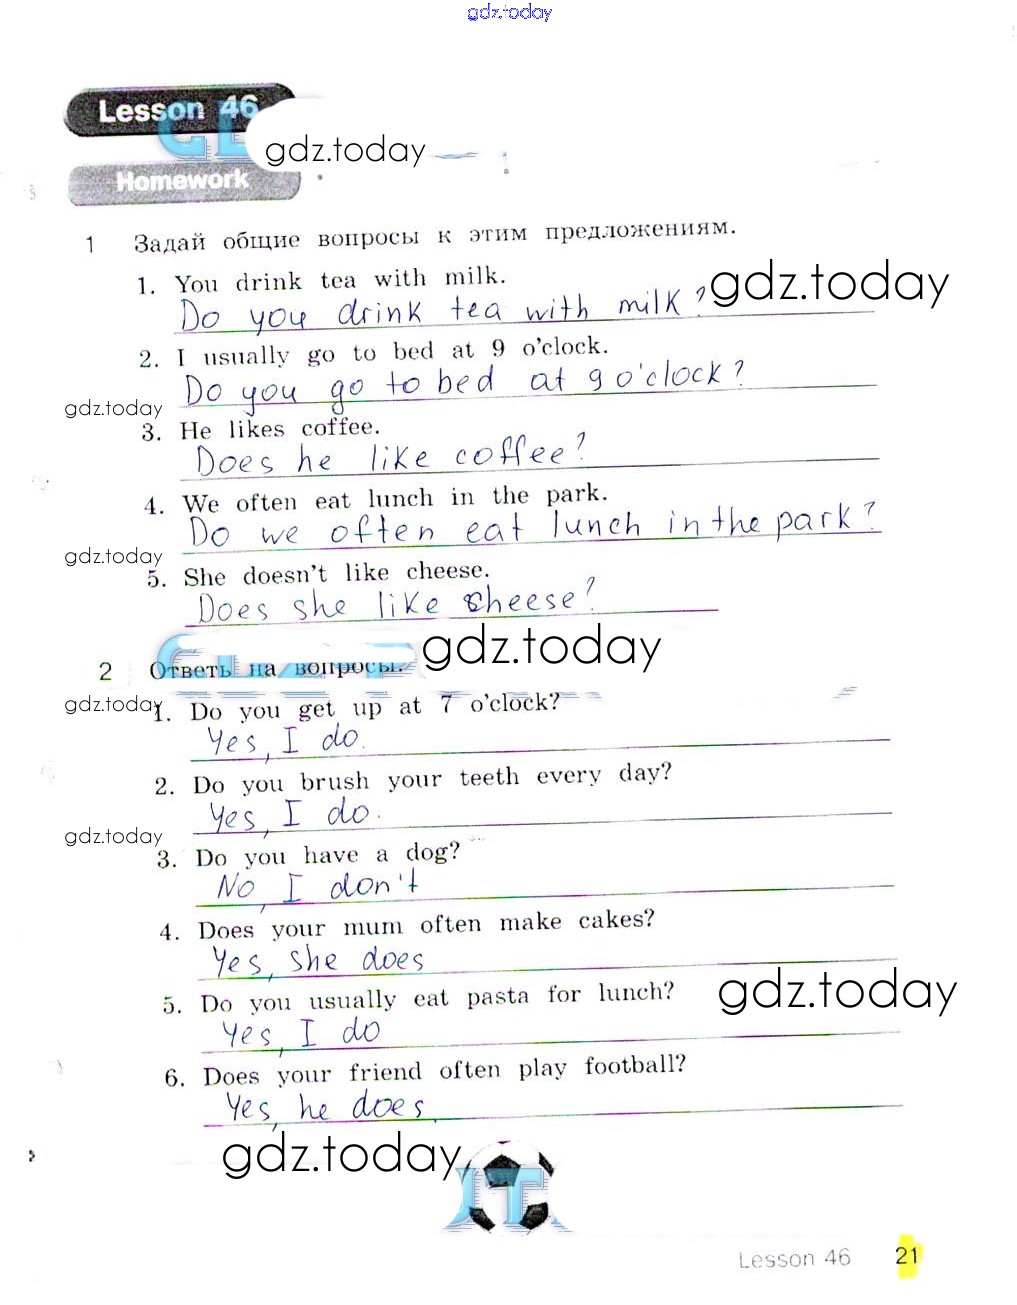 gdz.today
Lesson 46
gdz.today
Homework
1 Задай общие вопросы к этим предложениям.
1. You drink tea with milk.
gdz.today
Do you drink tea with milk?
2. I usually go to bed at 9 o'clock.
Do you go to bed at 9 o'clock?
gdz.today
3. He likes coffee.
Does he like coffee?
4. We often eat lunch in the park.
Do we often eat lunch in the park?
gdz.today
5. She doesn't like cheese.
Does she like cheese?
gdz.today
2 Ответь на вопросы.
gdz.today
1. Do you get up at 7 o'clock?
Yes, I do.
2. Do you brush your teeth every day?
Yes, I do.
gdz.today
3. Do you have a dog?
No, I don't
4. Does your mum often make cakes?
Yes, she does
gdz.today
5. Do you usually eat pasta for lunch?
Yes, I do
6. Does your friend often play football?
Yes, he does.
gdz.today
Lesson 46 21